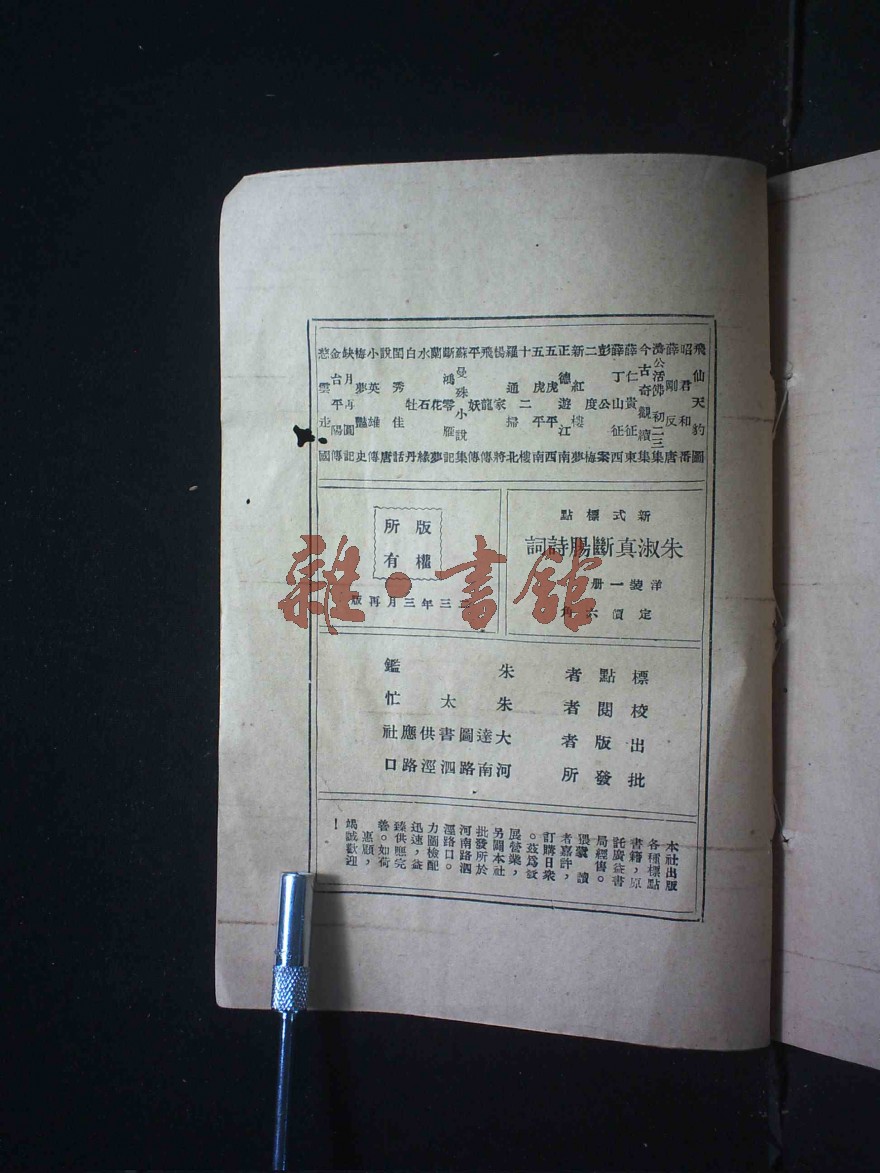 飛仙天豹圖
昭君和番
薛剛反唐
濟公活佛初二三集
今古奇觀續集
薛仁貴征東
薛丁山征西
彭公案
二度梅
新紅樓夢
正德遊江南
五虎平西
五虎平南
十二樓
羅通掃北
楊家將
飛龍傳
平妖傳
蘇曼殊小說集
斷鴻零雁記
蘭花夢
水石緣
白牡丹
閨秀佳話
說唐
小英雄傳
梅夢艷史
缺月再圓記
金台平陽傳
愁雲迷國
新式標點
朱淑真斷腸詩詞
洋裝一册
定價六角
版權所有
三三年三月再版
標點者 朱鑑
校閱者 朱太忙
出版者 大達圖書供應社
批發所 河南路泗涇路口
本社出版
各種標點
書籍，原
託廣益書
局經售。
猥蒙 讀
者嘉許，
訂購日衆
。茲爲
展營業，
另闢本社
批發所於
河南路泗
涇路口。
力圖檢配
迅速，益
臻供應完
善。如荷
惠顧，
竭誠歡迎
！
雜·書館